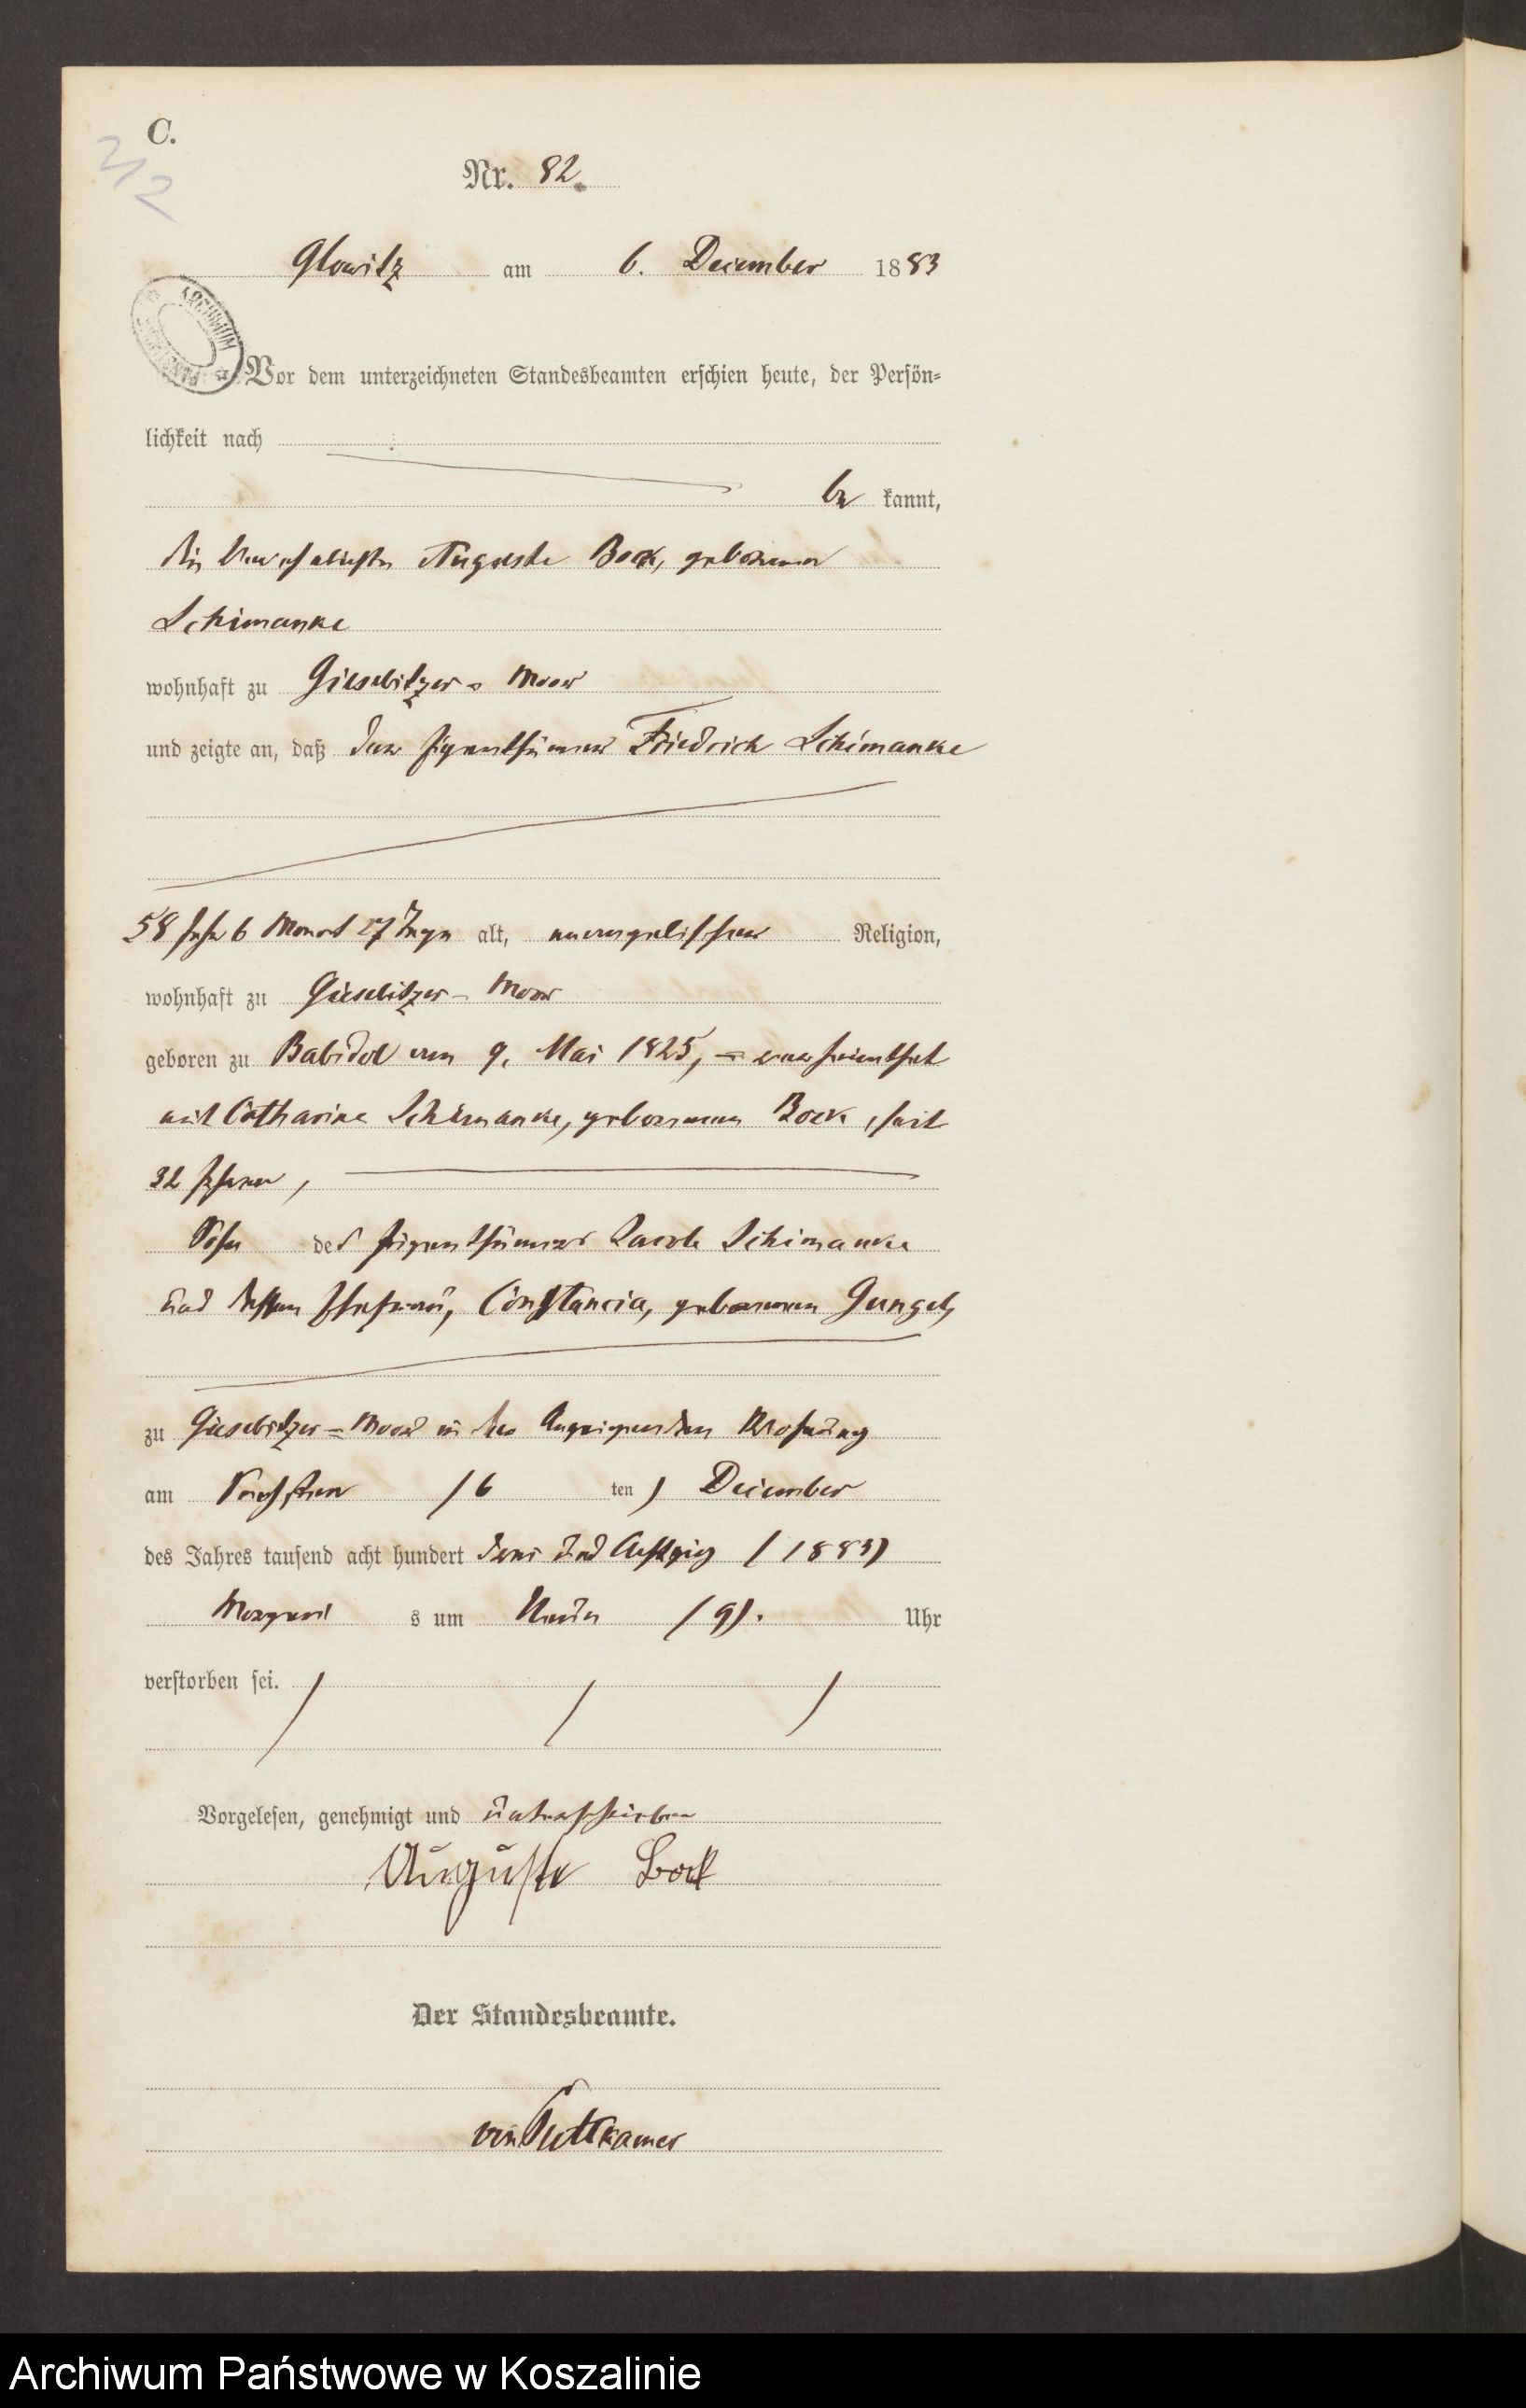 C.
212
Nr. 82.
Glowitz am 6. December 1883
ARCHIWUM
Vor dem unterzeichneten Standesbeamten erschien heute, der Persön-
lichkeit nach
be kannt,
die Verehelichte Auguste Bock, geborene
Schimanke
wohnhaft zu Giesebitzer-Moor
und zeigte an, daß der Eigenthümer Friedrich Schimanke
58 Jahr 6 Monat 27 Tage alt, evangelischer Religion,
wohnhaft zu Giesebitzer-Moor
geboren zu Babidol am 9. Mai 1825, - verheirathet
mit Catharina Schimanke, geborenen Bock, seit
32 Jahren,
Sohn des Eigenthümers Jacob Schimanke
und dessen Ehefrau, Constancia, geborenen Gungel,
zu Giesebitzer-Moor in der Anzeigenden Wohnung
am Sechsten (6 ten) December
des Jahres tausend acht hundert drei und Achtzig (1883)
Morgens s um Neun (9). Uhr
verstorben sei.
Vorgelesen, genehmigt und unterschrieben
Auguste Bock
Der Standesbeamte.
von Puttkamer
Archiwum Państwowe w Koszalinie